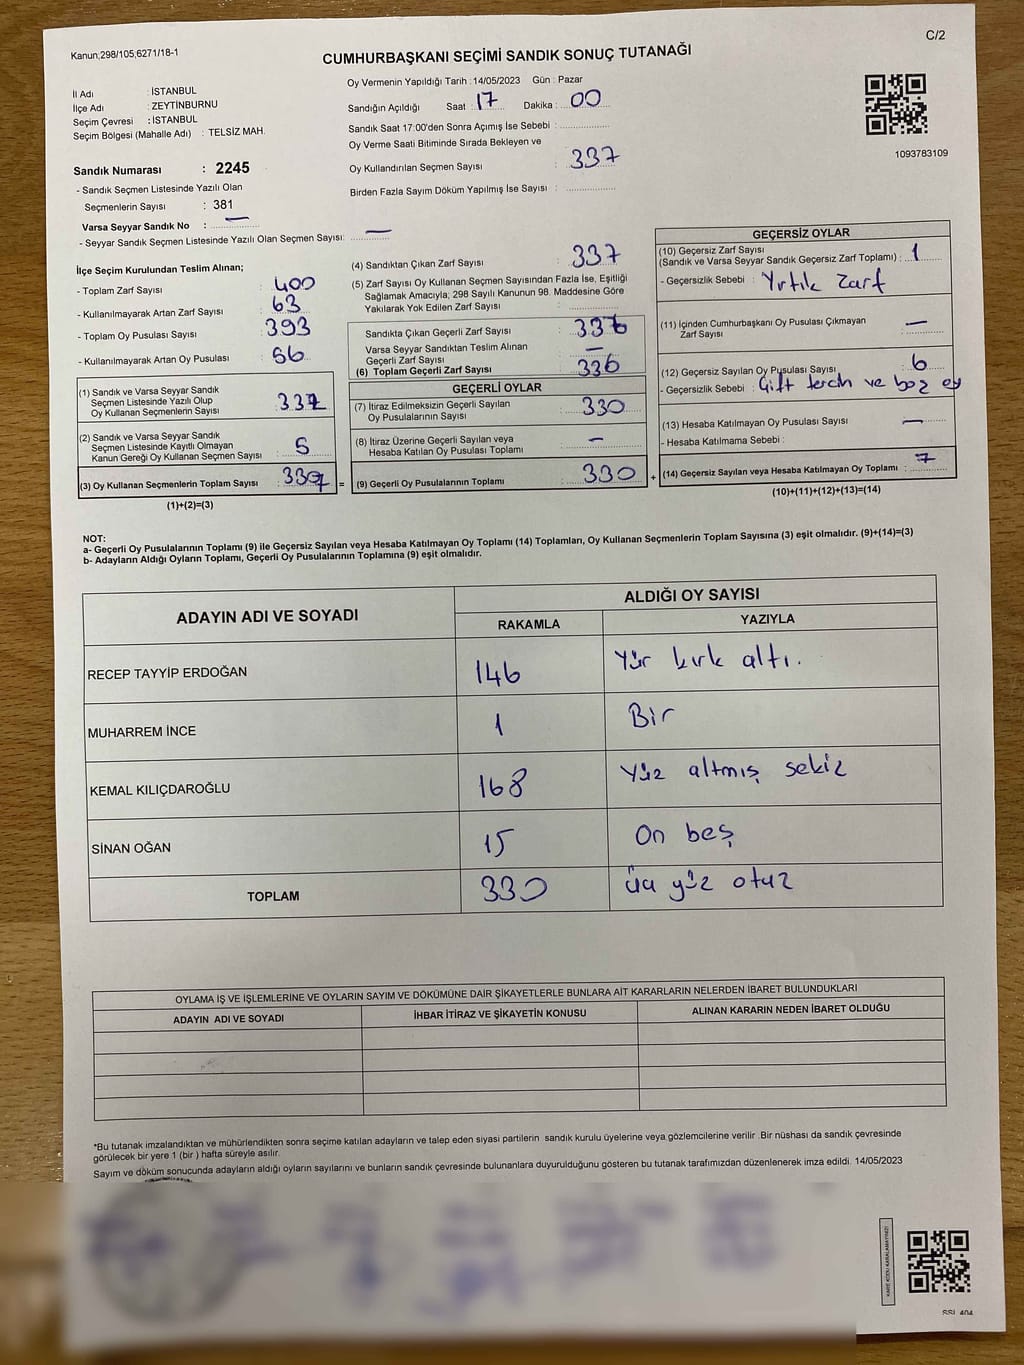 Kanun;298/105,6271/18-1
C/2
CUMHURBAŞKANI SEÇİMİ SANDIK SONUÇ TUTANAĞI
İl Adı : İSTANBUL
İlçe Adı : ZEYTİNBURNU
Seçim Çevresi : İSTANBUL
Seçim Bölgesi (Mahalle Adı) : TELSİZ MAH.
Sandık Numarası : 2245
- Sandık Seçmen Listesinde Yazılı Olan
Seçmenlerin Sayısı : 381
Varsa Seyyar Sandık No : —
- Seyyar Sandık Seçmen Listesinde Yazılı Olan Seçmen Sayısı: —
Oy Vermenin Yapıldığı Tarih : 14/05/2023 Gün : Pazar
Sandığın Açıldığı Saat : 17 Dakika : 00
Sandık Saat 17:00'den Sonra Açımış İse Sebebi :
Oy Verme Saati Bitiminde Sırada Bekleyen ve
Oy Kullandırılan Seçmen Sayısı : 337
Birden Fazla Sayım Döküm Yapılmış İse Sayısı :
1093783109
İlçe Seçim Kurulundan Teslim Alınan;
- Toplam Zarf Sayısı : 400
- Kullanılmayarak Artan Zarf Sayısı : 63
- Toplam Oy Pusulası Sayısı : 393
- Kullanılmayarak Artan Oy Pusulası : 56
(1) Sandık ve Varsa Seyyar Sandık
Seçmen Listesinde Yazılı Olup
Oy Kullanan Seçmenlerin Sayısı : 332
(2) Sandık ve Varsa Seyyar Sandık
Seçmen Listesinde Kayıtlı Olmayan
Kanun Gereği Oy Kullanan Seçmen Sayısı : 5
(3) Oy Kullanan Seçmenlerin Toplam Sayısı : 337 =
(1)+(2)=(3)
(4) Sandıktan Çıkan Zarf Sayısı : 337
(5) Zarf Sayısı Oy Kullanan Seçmen Sayısından Fazla İse, Eşitliği
Sağlamak Amacıyla; 298 Sayılı Kanunun 98. Maddesine Göre
Yakılarak Yok Edilen Zarf Sayısı :
Sandıkta Çıkan Geçerli Zarf Sayısı : 336
Varsa Seyyar Sandıktan Teslim Alınan
Geçerli Zarf Sayısı : —
(6) Toplam Geçerli Zarf Sayısı : 336
GEÇERLİ OYLAR
(7) İtiraz Edilmeksizin Geçerli Sayılan
Oy Pusulalarının Sayısı : 330
(8) İtiraz Üzerine Geçerli Sayılan veya
Hesaba Katılan Oy Pusulası Toplamı : —
(9) Geçerli Oy Pusulalarının Toplamı : 330 +
GEÇERSİZ OYLAR
(10) Geçersiz Zarf Sayısı
(Sandık ve Varsa Seyyar Sandık Geçersiz Zarf Toplamı) : 1
- Geçersizlik Sebebi : Yırtık Zarf
(11) İçinden Cumhurbaşkanı Oy Pusulası Çıkmayan
Zarf Sayısı : —
(12) Geçersiz Sayılan Oy Pusulası Sayısı : 6
- Geçersizlik Sebebi : Çift tercih ve boş oy
(13) Hesaba Katılmayan Oy Pusulası Sayısı : —
- Hesaba Katılmama Sebebi :
(14) Geçersiz Sayılan veya Hesaba Katılmayan Oy Toplamı : 7
(10)+(11)+(12)+(13)=(14)
NOT:
a- Geçerli Oy Pusulalarının Toplamı (9) ile Geçersiz Sayılan veya Hesaba Katılmayan Oy Toplamı (14) Toplamları, Oy Kullanan Seçmenlerin Toplam Sayısına (3) eşit olmalıdır. (9)+(14)=(3)
b- Adayların Aldığı Oyların Toplamı, Geçerli Oy Pusulalarının Toplamına (9) eşit olmalıdır.
ADAYIN ADI VE SOYADI
ALDIĞI OY SAYISI
RAKAMLA YAZIYLA
RECEP TAYYİP ERDOĞAN 146 Yüz kırk altı.
MUHARREM İNCE 1 Bir
KEMAL KILIÇDAROĞLU 168 Yüz altmış sekiz
SİNAN OĞAN 15 On beş
TOPLAM 330 üç yüz otuz
OYLAMA İŞ VE İŞLEMLERİNE VE OYLARIN SAYIM VE DÖKÜMÜNE DAİR ŞİKAYETLERLE BUNLARA AİT KARARLARIN NELERDEN İBARET BULUNDUKLARI
ADAYIN ADI VE SOYADI İHBAR İTİRAZ VE ŞİKAYETİN KONUSU ALINAN KARARIN NEDEN İBARET OLDUĞU
*Bu tutanak imzalandıktan ve mühürlendikten sonra seçime katılan adayların ve talep eden siyasi partilerin sandık kurulu üyelerine veya gözlemcilerine verilir .Bir nüshası da sandık çevresinde
görülecek bir yere 1 (bir ) hafta süreyle asılır.
Sayım ve döküm sonucunda adayların aldığı oyların sayılarını ve bunların sandık çevresinde bulunanlara duyurulduğunu gösteren bu tutanak tarafımızdan düzenlenerek imza edildi. 14/05/2023
KARE KODU KARALAMAYINIZ!